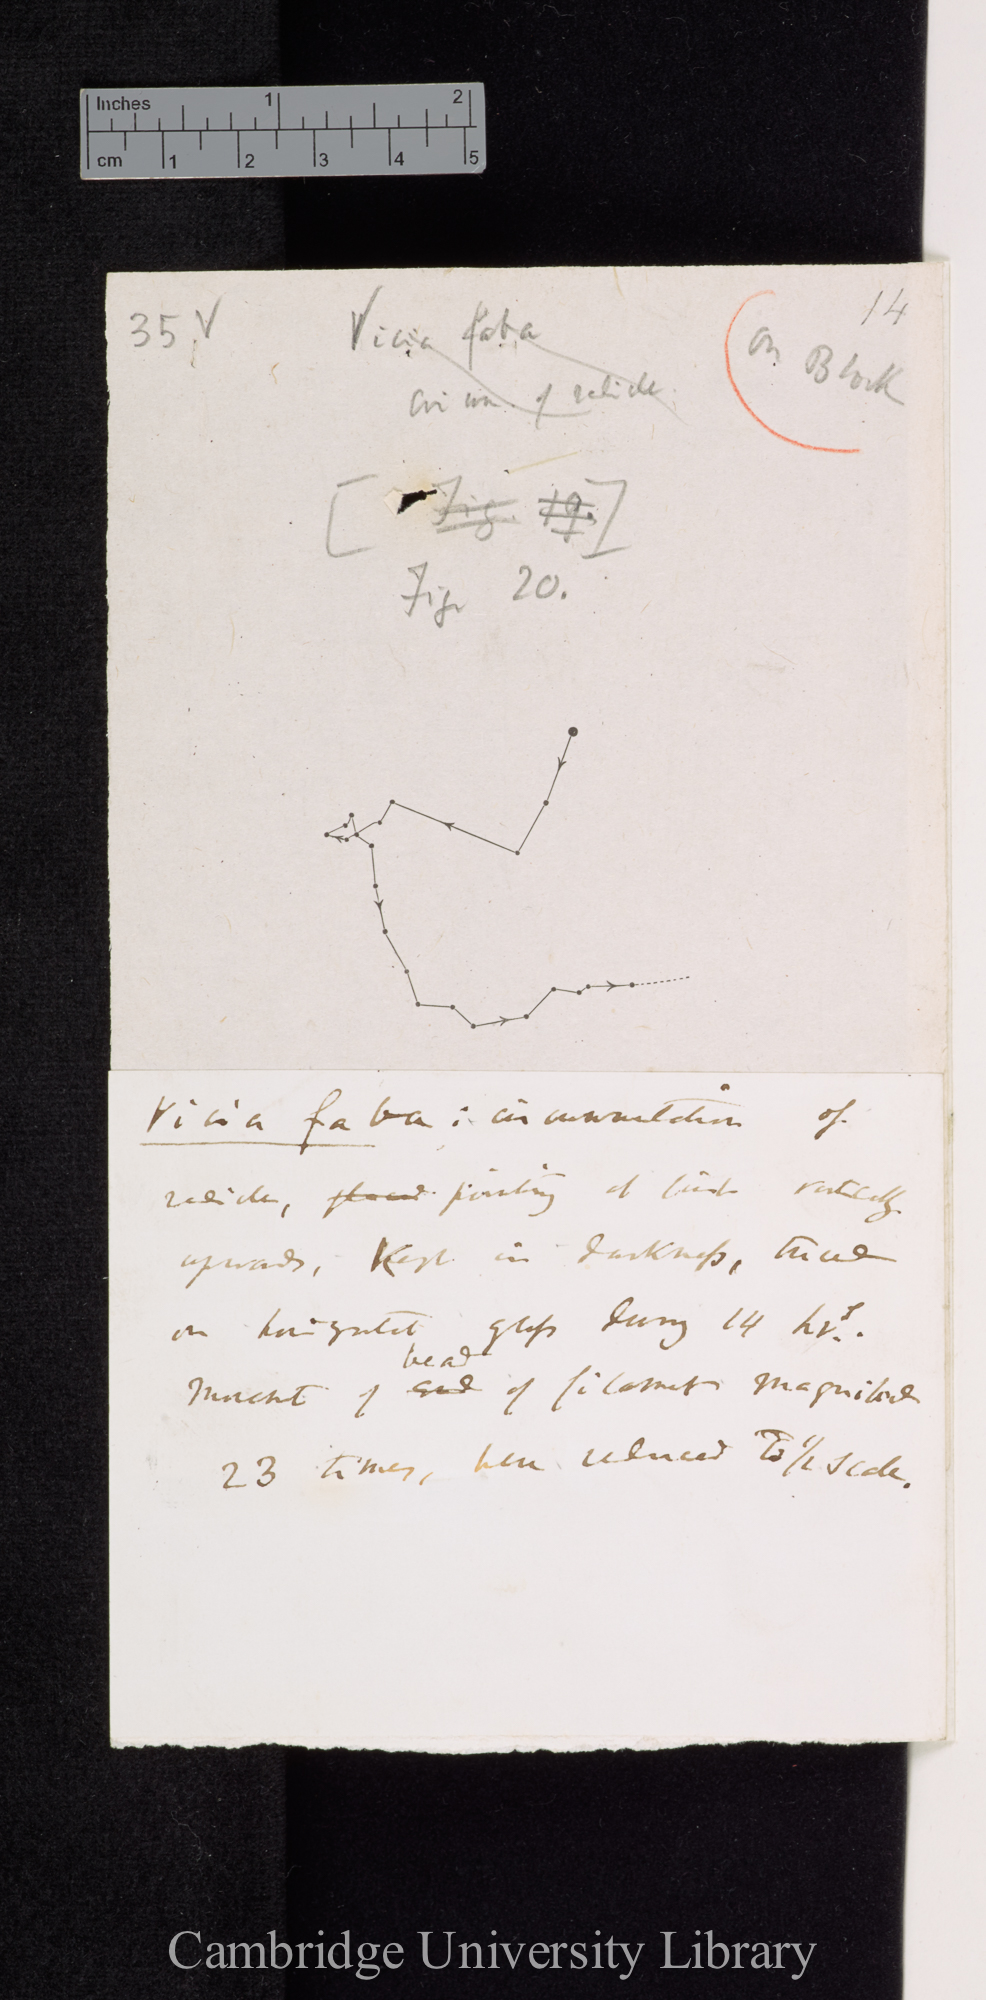 Inches 1 2
cm 1 2 3 4 5
14
35 V Vicia faba on Block
circum. of radicle
[Fig. 19.]
Fig 20.
Vicia faba: circumnutation of
radicle, pointing at first vertically
upwards, Kept in darkness, traced
on horizontal glass during 14 hrs.
bead
Movement of end of filament magnified
23 times, here reduced to 1/2 scale.
Cambridge University Library